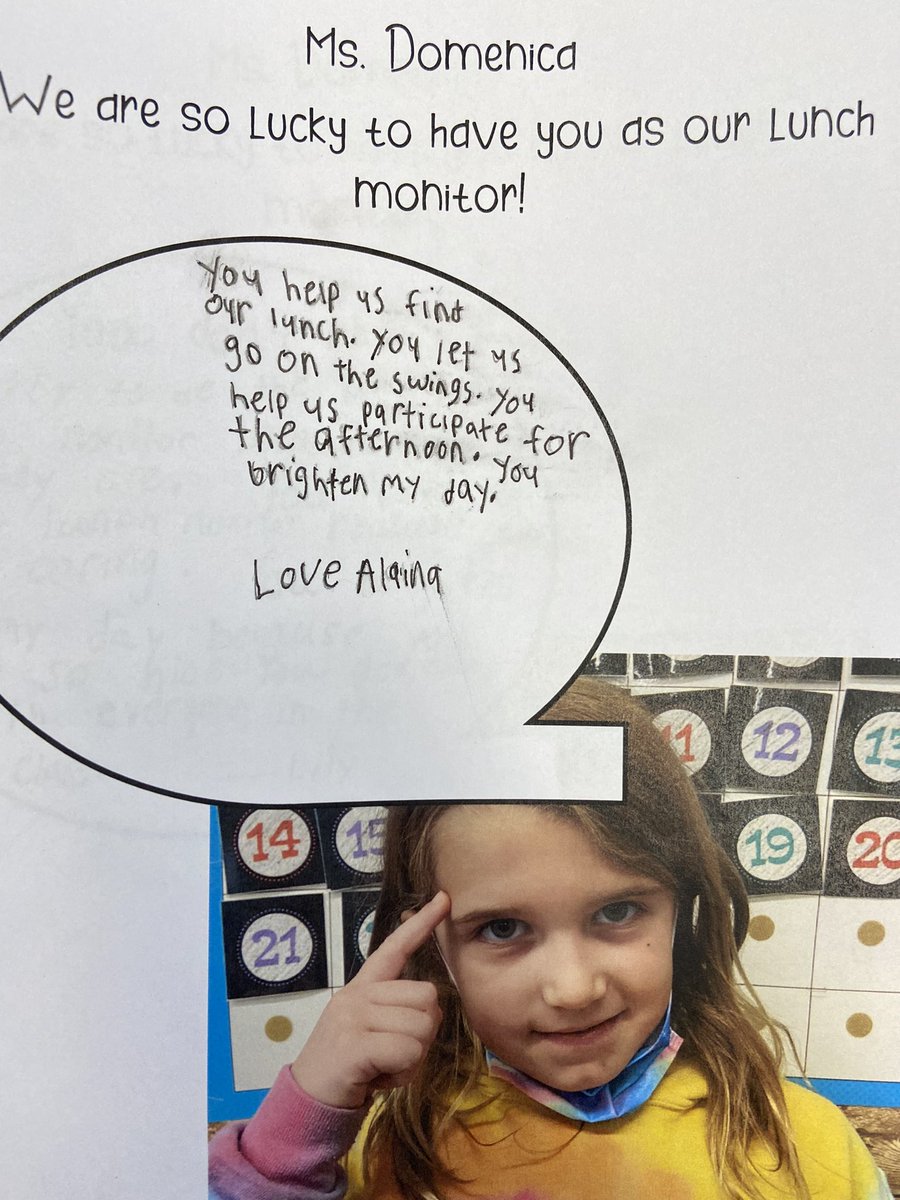 Ms. Domenica
We are so Lucky to have you as our Lunch
monitor!
You help us find
our lunch. You let us
go on the swings. You
help us participate for
the afternoon. You
brighten my day.
Love Alaina
11 12 13
14 15 19 20
21